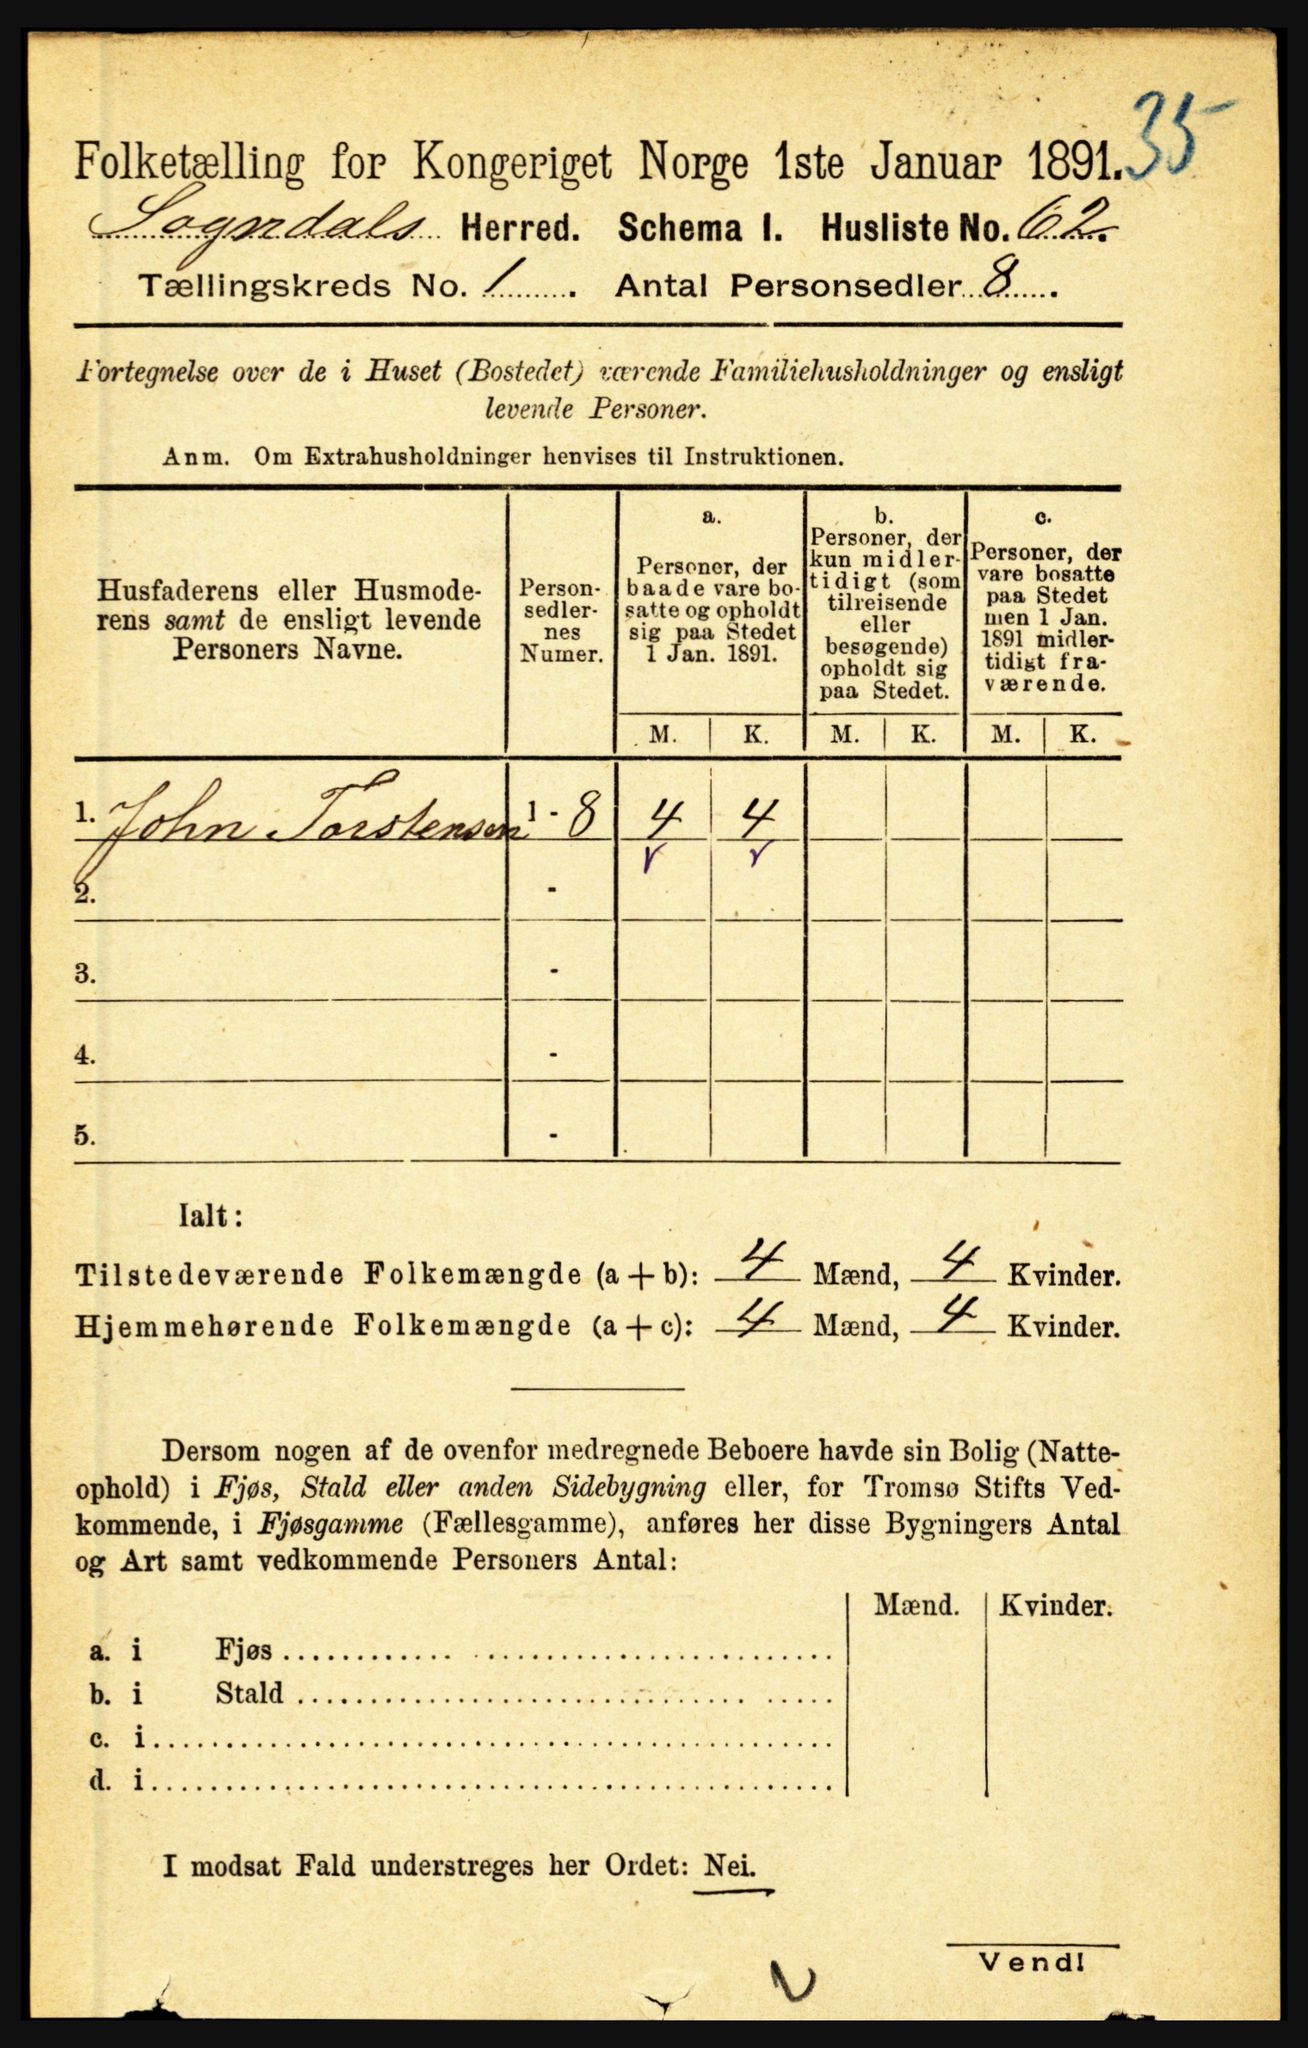 35
Folketælling for Kongeriget Norge 1ste Januar 1891.
Sogndals Herred. Schema I. Husliste No. 62.
Tællingskreds No. 1. Antal Personsedler 8.
Fortegnelse over de i Huset (Bostedet) værende Familiehusholdninger og ensligt
levende Personer.
Anm. Om Extrahusholdninger henvises til Instruktionen.
Husfaderens eller Husmode-
rens samt de ensligt levende
Personers Navne.
Person-
sedler-
nes
Numer.
a.
Personer, der
baade vare bo-
satte og opholdt
sig paa Stedet
1 Jan. 1891.
b.
Personer, der
kun midler-
tidigt (som
tilreisende
eller
besøgende)
opholdt sig
paa Stedet.
c.
Personer, der
vare bosatte
paa Stedet
men 1 Jan.
1891 midler-
tidigt fra-
værende.
M. K. M. K. M. K.
1. John Torstensen 1 - 8 4 4
2. -
3. -
4. -
5. -
Ialt:
Tilstedeværende Folkemængde (a + b): 4 Mænd, 4 Kvinder.
Hjemmehørende Folkemængde (a + c): 4 Mænd, 4 Kvinder.
Dersom nogen af de ovenfor medregnede Beboere havde sin Bolig (Natte-
ophold) i Fjøs, Stald eller anden Sidebygning eller, for Tromsø Stifts Ved-
kommende, i Fjøsgamme (Fællesgamme), anføres her disse Bygningers Antal
og Art samt vedkommende Personers Antal:
Mænd. Kvinder.
a. i Fjøs
b. i Stald
c. i
d. i
I modsat Fald understreges her Ordet: Nei.
Vend!